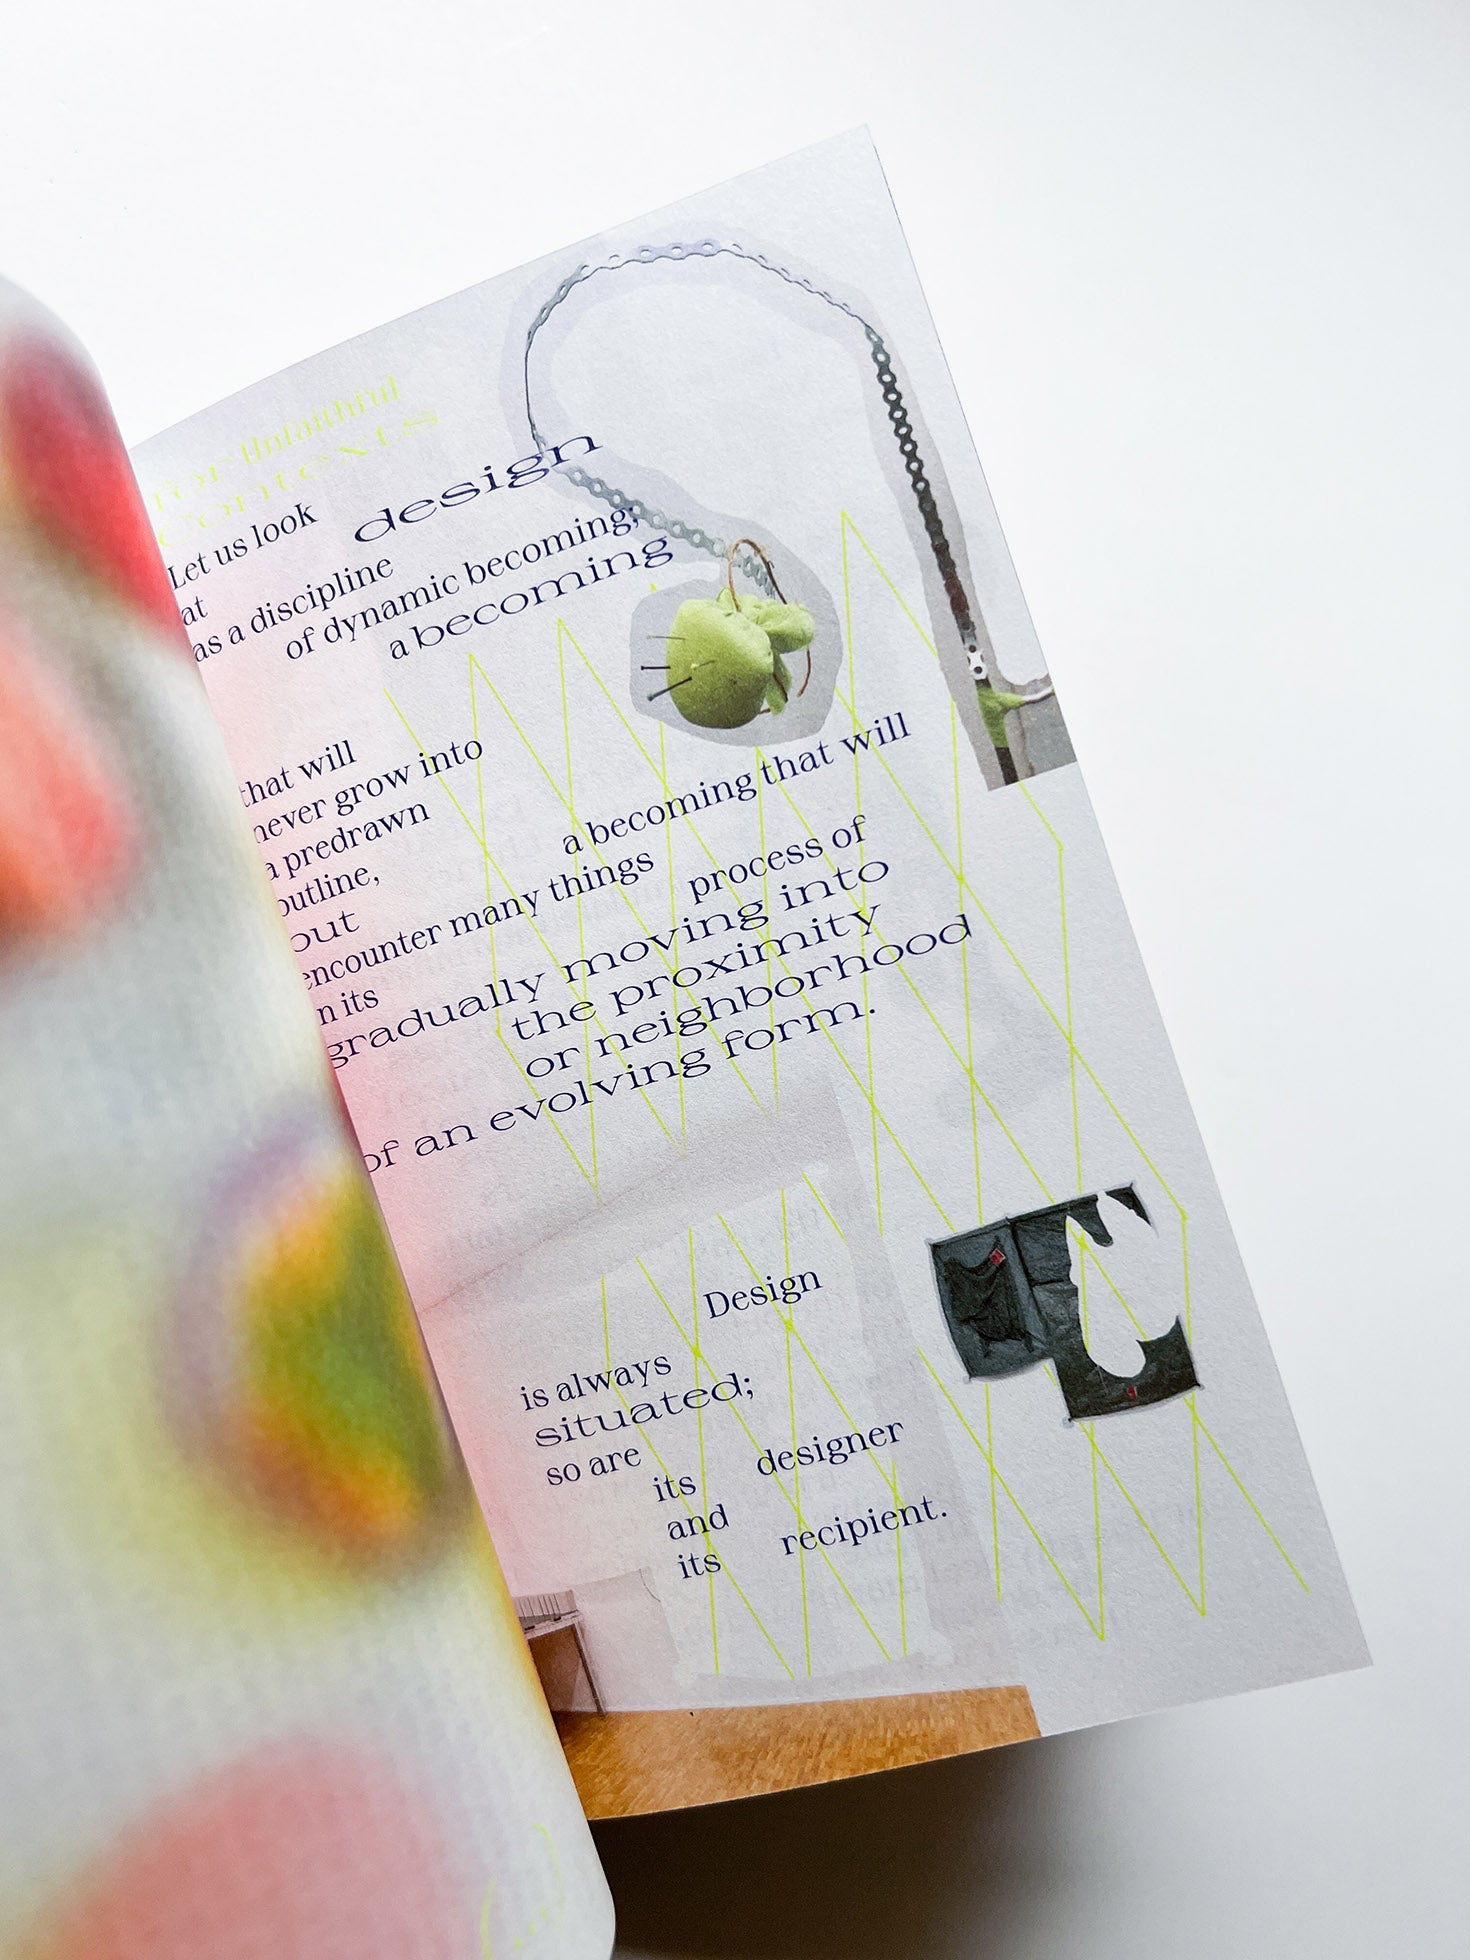 for Unfaithful
Contexts
Let us look
at design
as a discipline
of dynamic becoming;
a becoming
that will
never grow into
a predrawn
outline,
but a becoming that will
encounter many things
in its process of
gradually moving into
the proximity
or neighborhood
of an evolving form.
Design
is always
situated;
so are
its designer
and
its recipient.
(...)